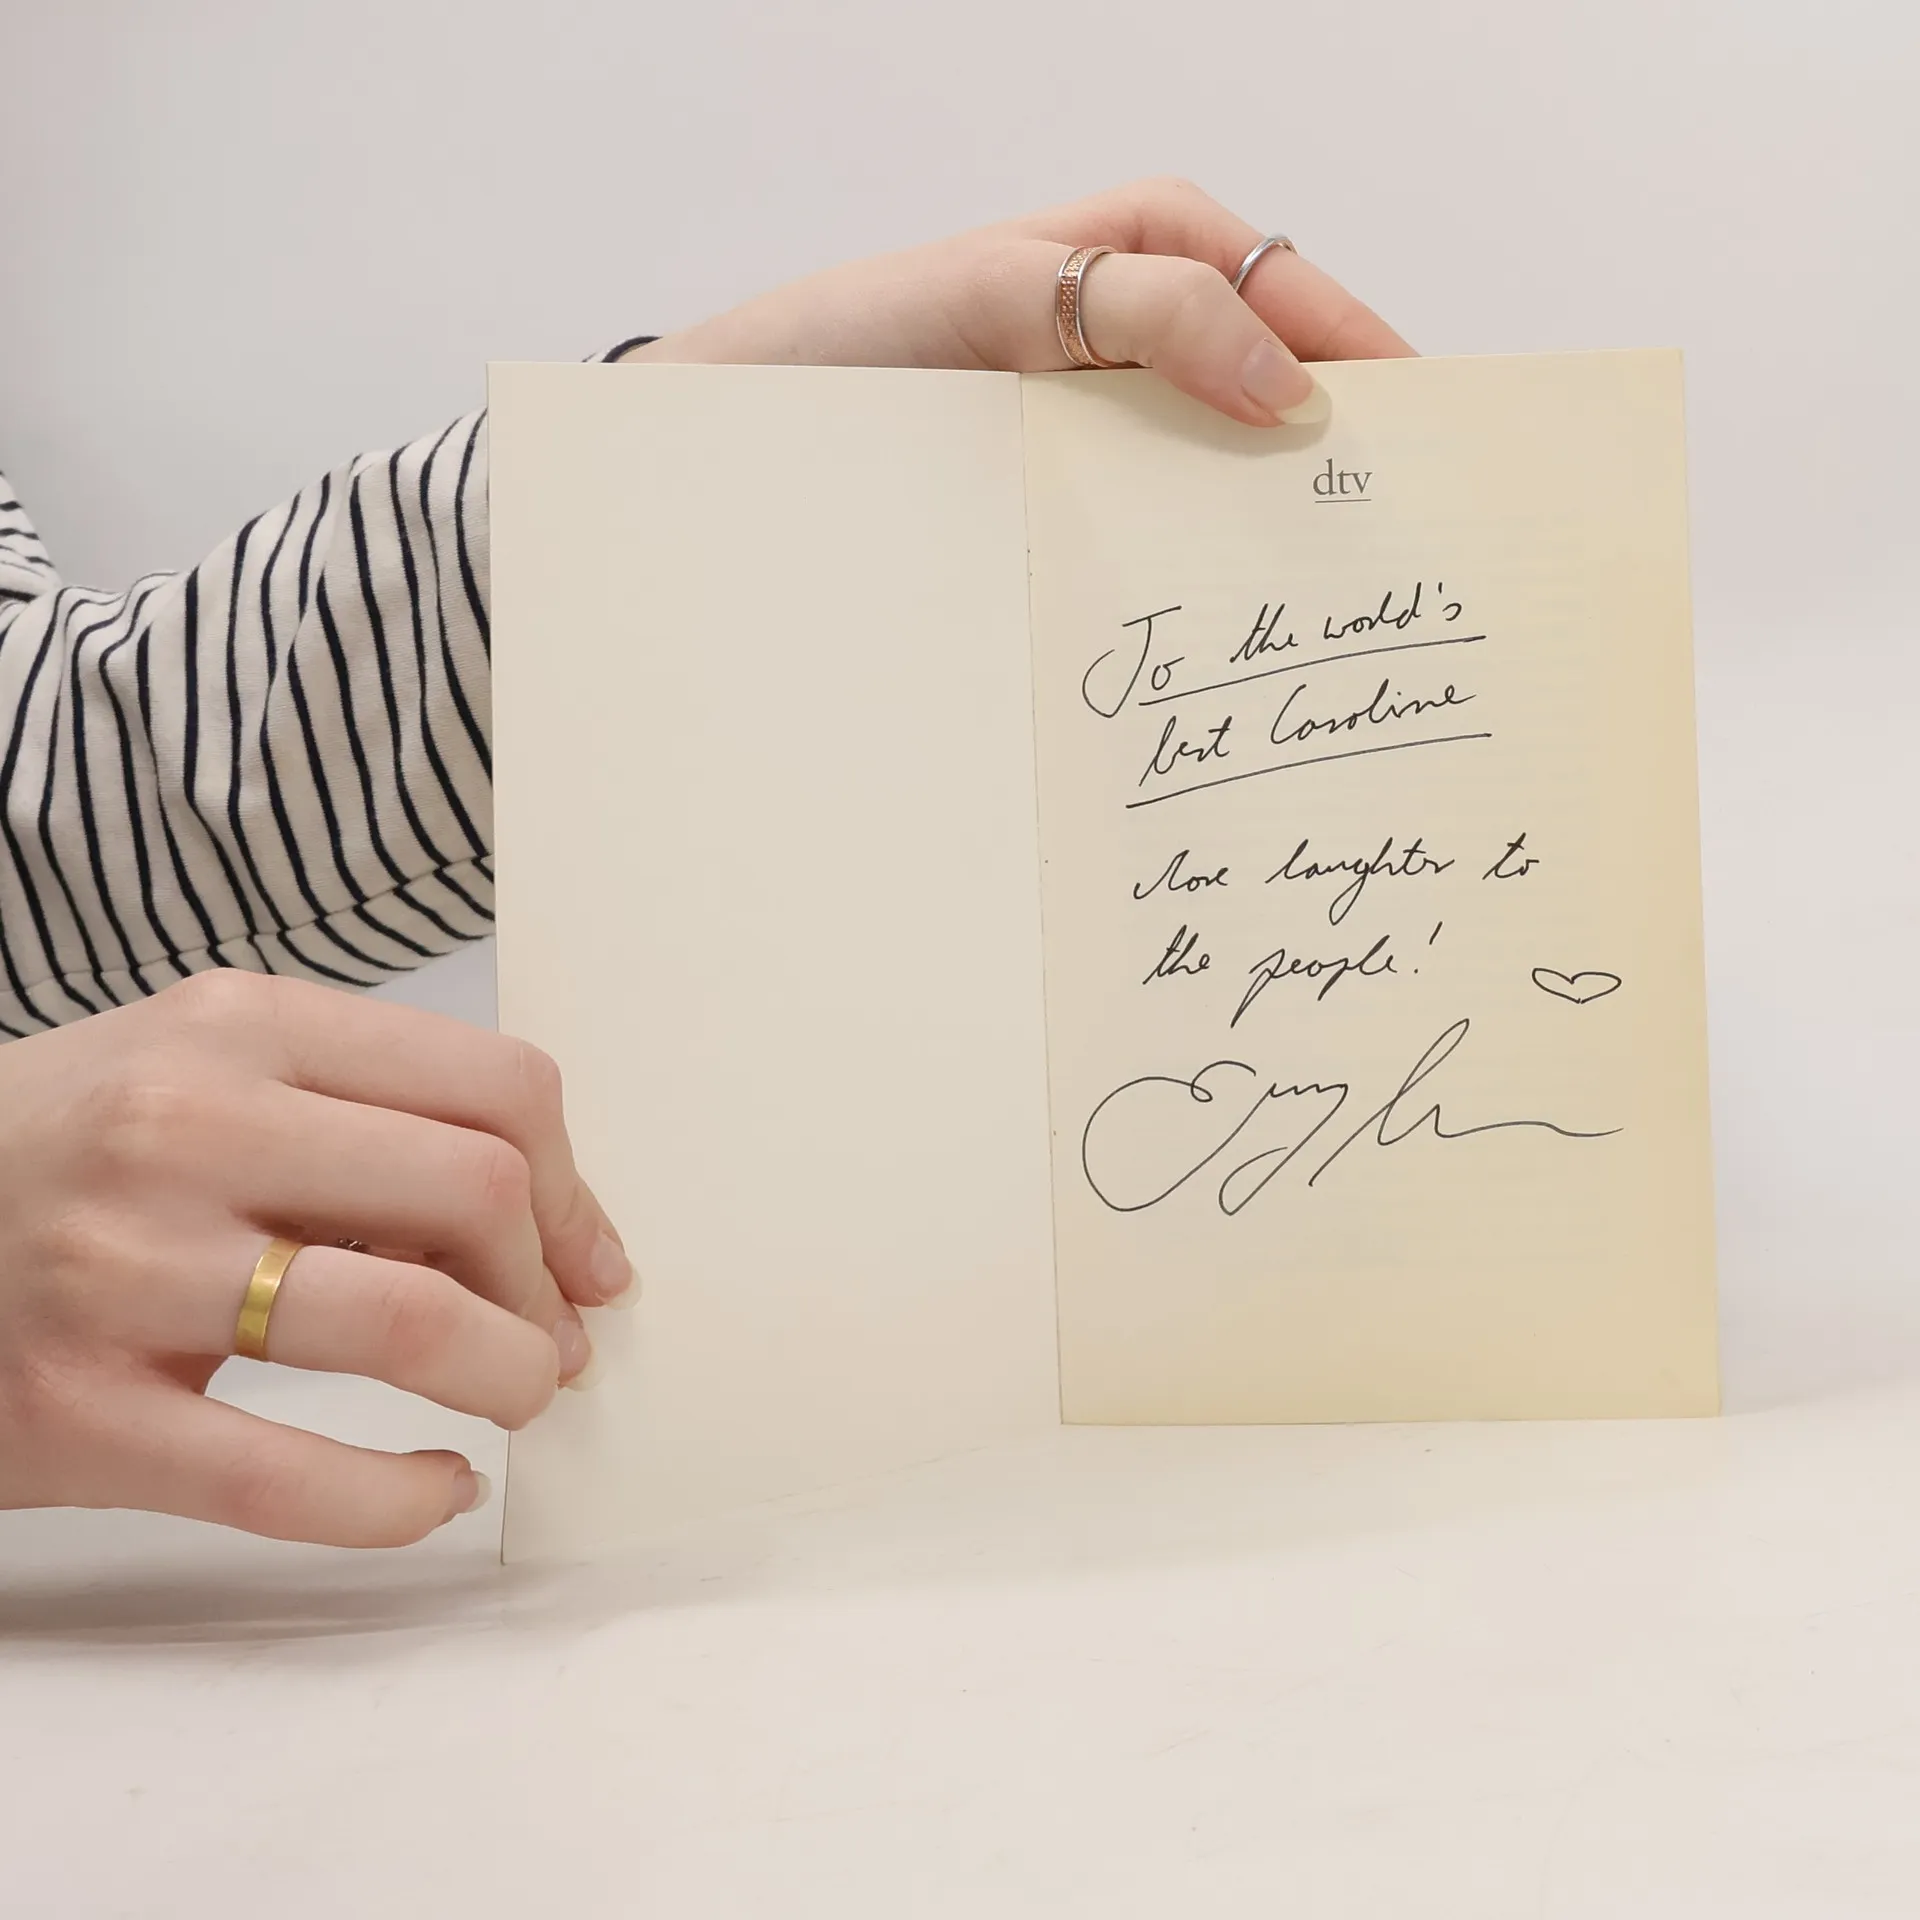 dtv
To the world's
best Caroline
More laughter to
the people!